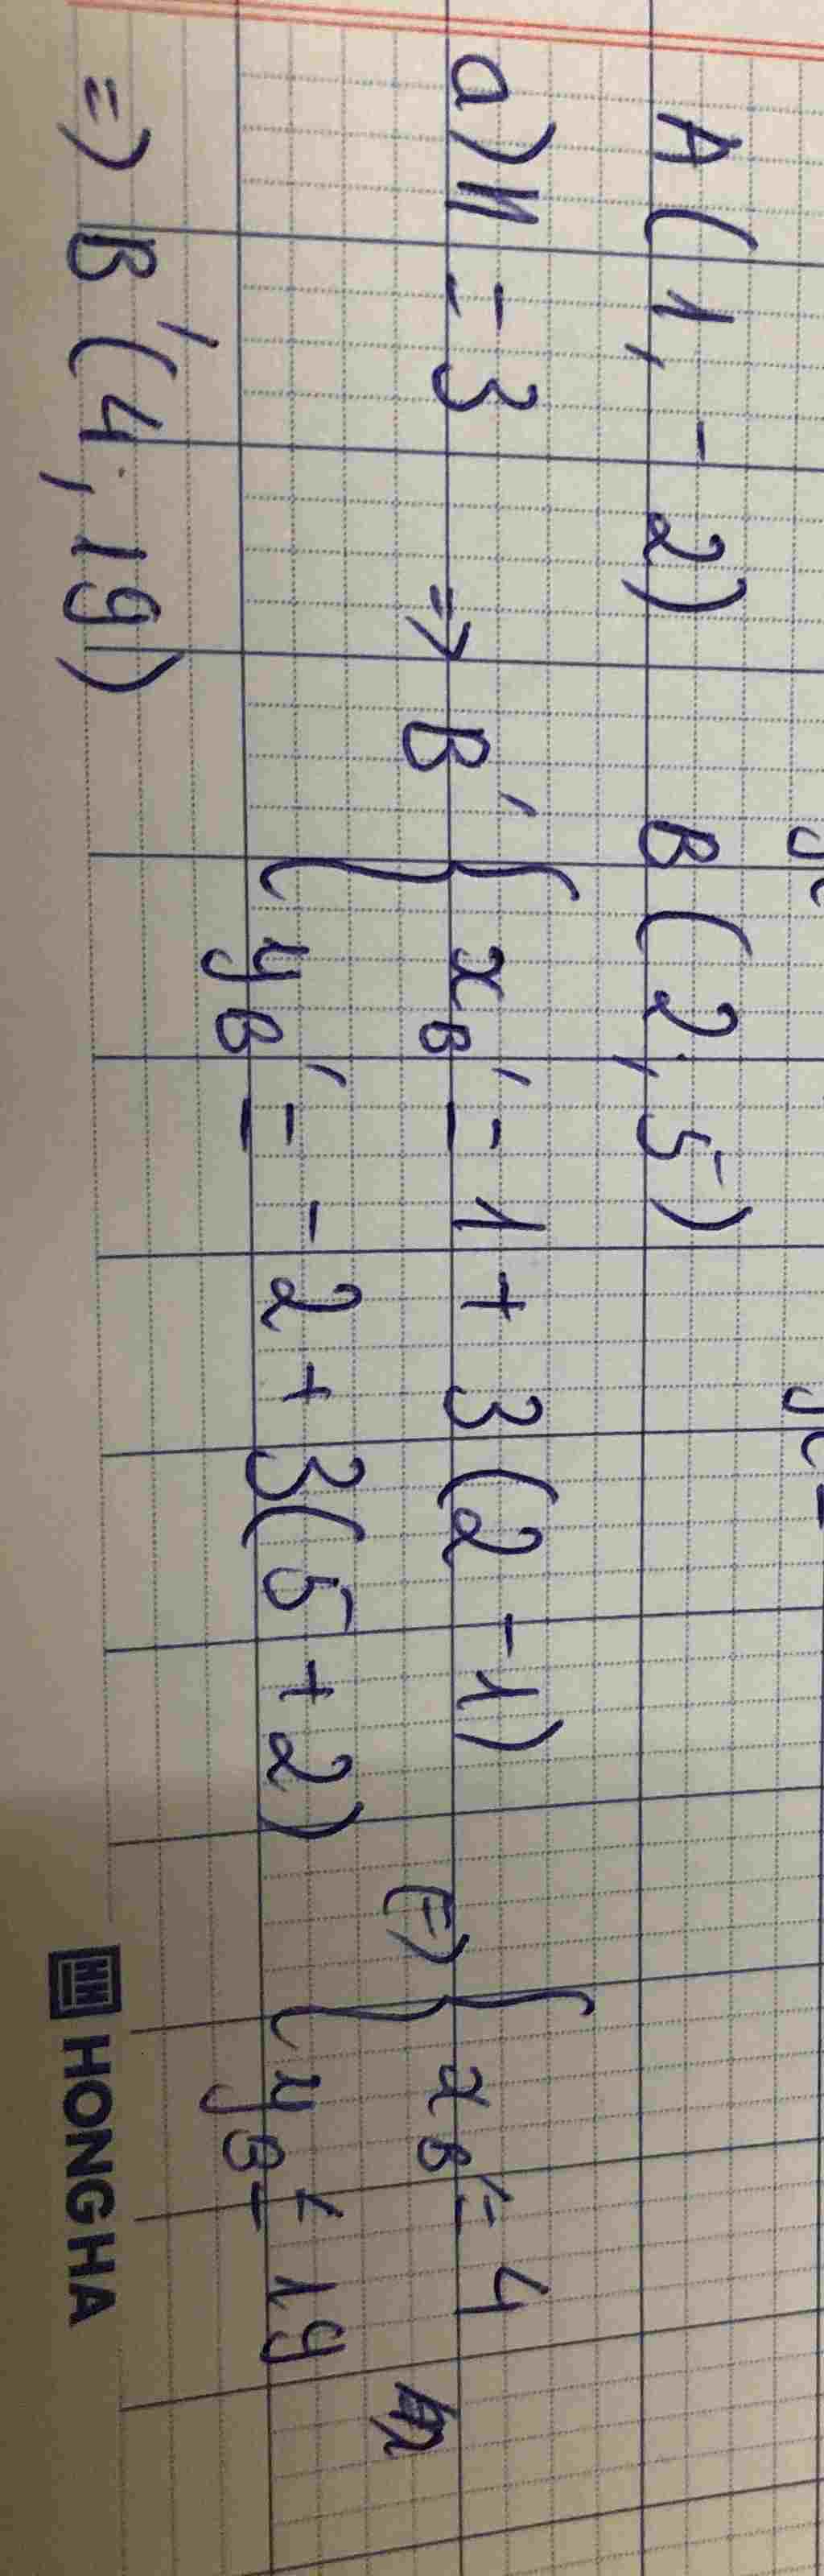 A(1, -2) B(2; 5)
a) k = 3 => B' { x_B' = 1 + 3(2 - 1) <=> { x_B' = 4
y_B' = -2 + 3(5 + 2) y_B' = 19
=> B'(4; 19)
HH HONGHA